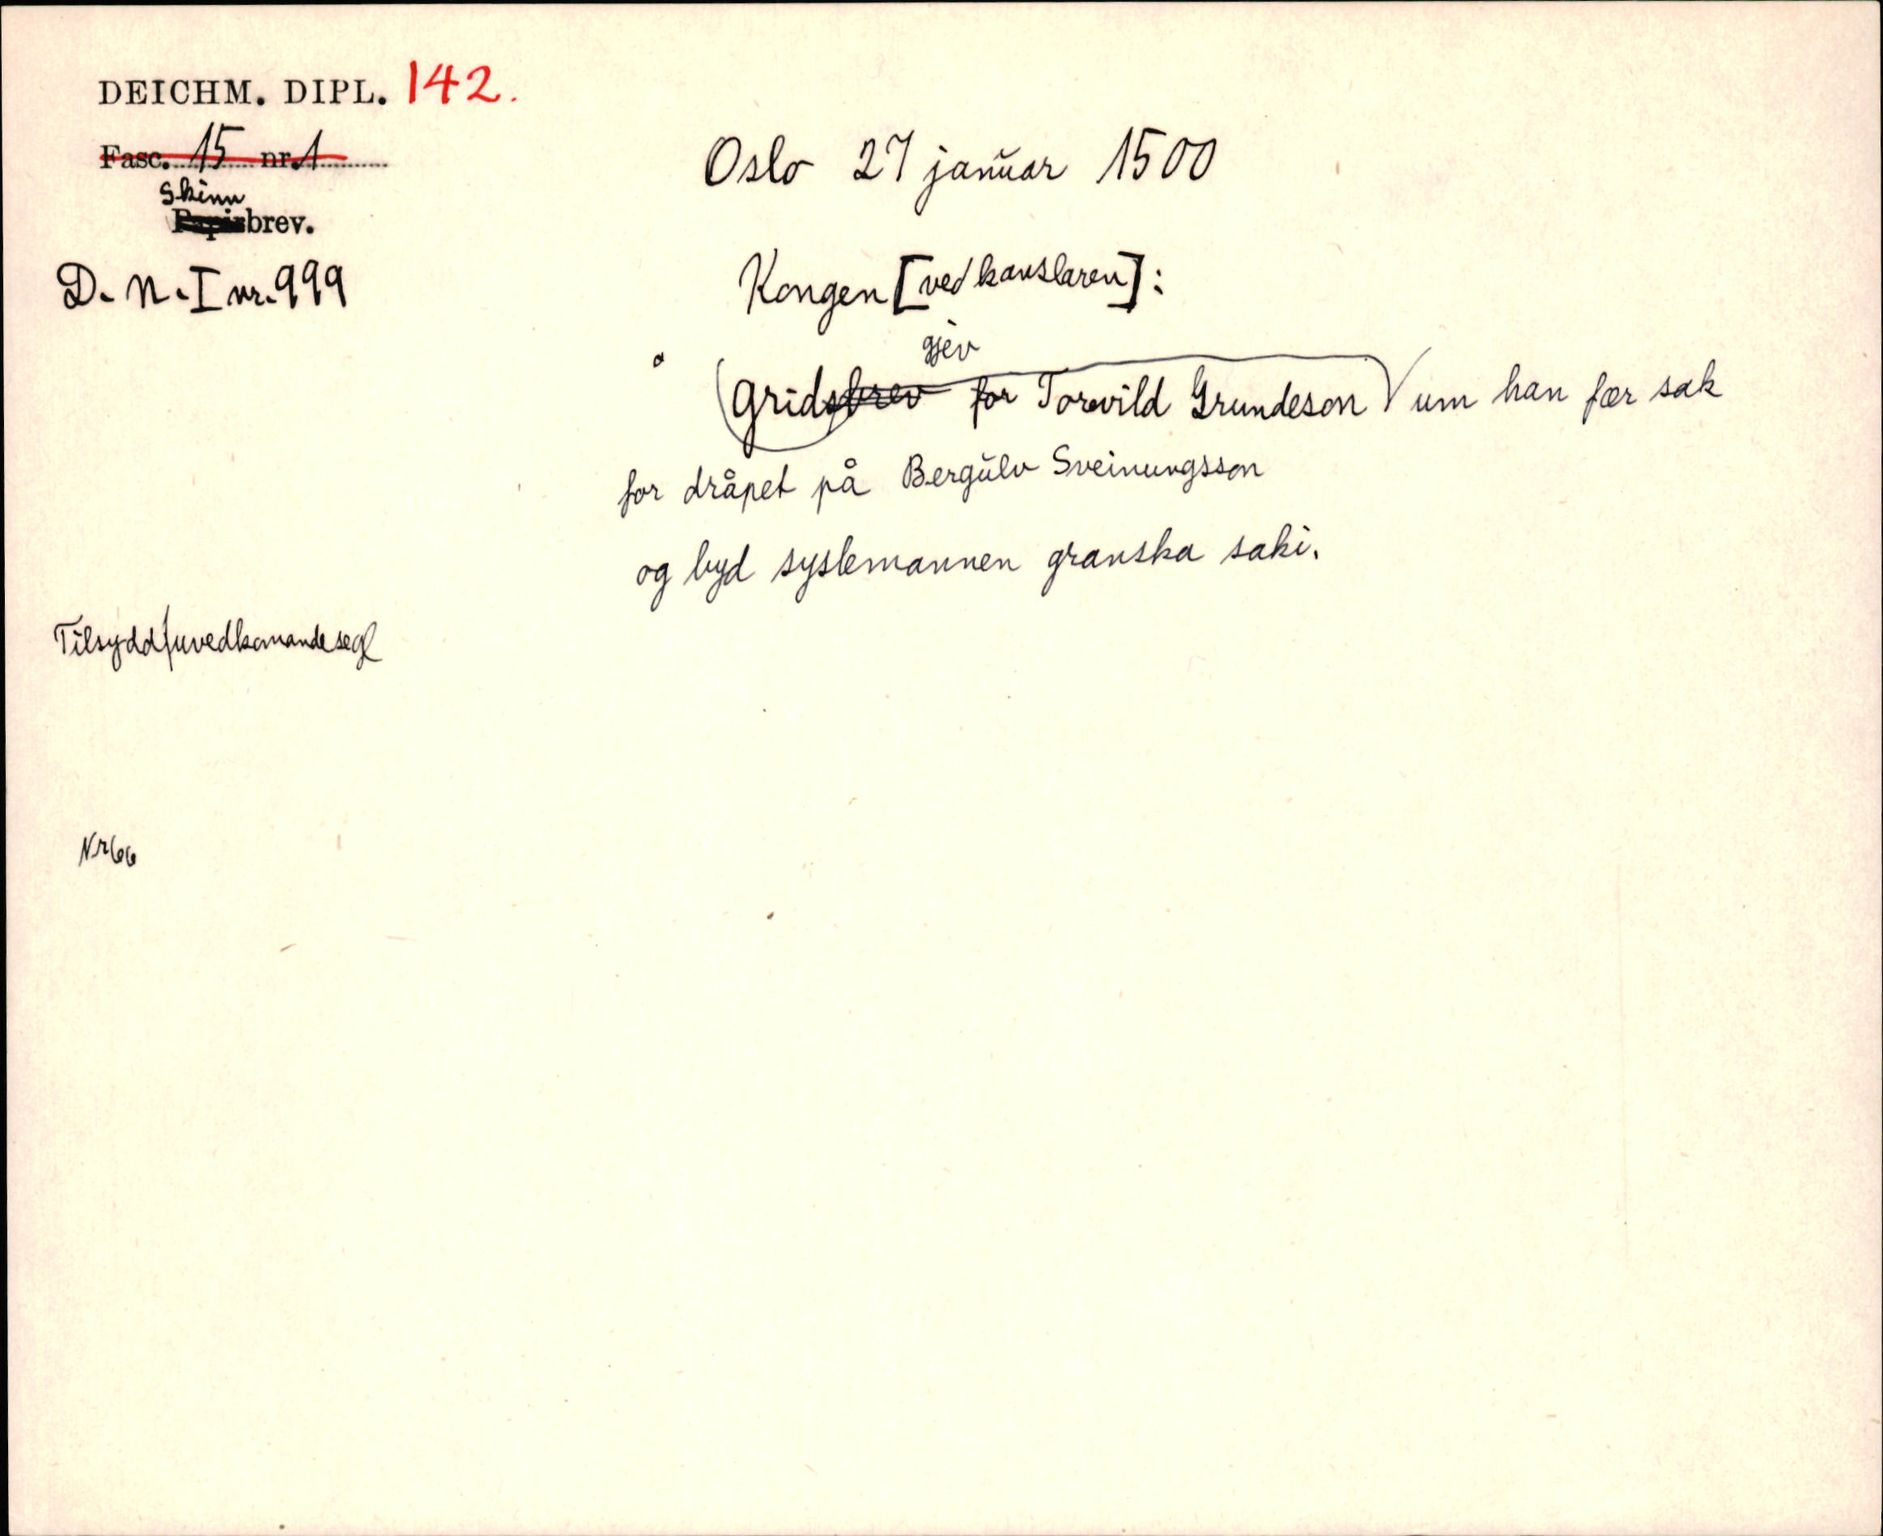 DEICHM. DIPL. 142.
Fasc. 15 nr. 1
Skinn
Papirbrev.
D. N. I nr. 999
Oslo 27 januar 1500
Kongen [ved kanslaren]:
gjev
Gridsbrev for Torvild Grundeson um han fær sak
for dråpet på Bergulv Sveinungsson
og byd syslemannen granska saki.
Tilsydd uvedkomande segl
Nr 66